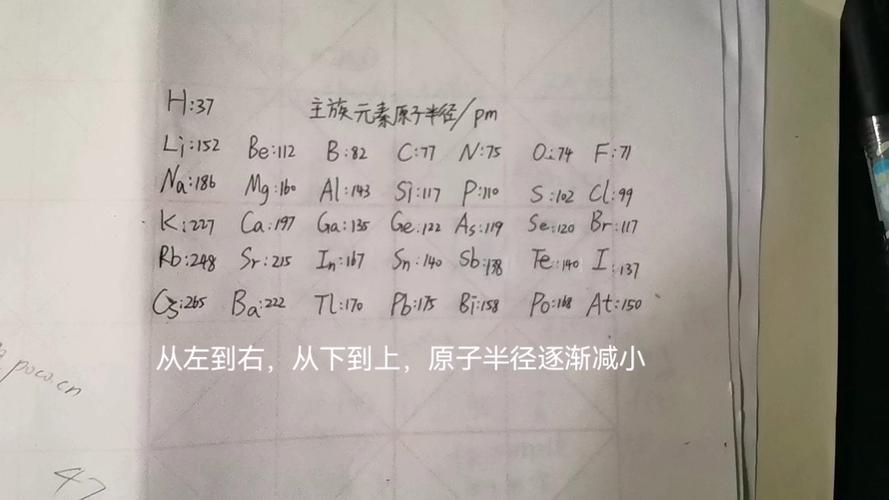 H:37 主族元素原子半径/pm
Li:152 Be:112 B:82 C:77 N:75 O:74 F:71
Na:186 Mg:160 Al:143 Si:117 P:110 S:102 Cl:99
K:227 Ca:197 Ga:135 Ge:122 As:119 Se:120 Br:117
Rb:248 Sr:215 In:167 Sn:140 Sb:138 Te:140 I:137
Cs:265 Ba:222 Tl:170 Pb:175 Bi:158 Po:168 At:150
从左到右，从下到上，原子半径逐渐减小
poco.cn
47